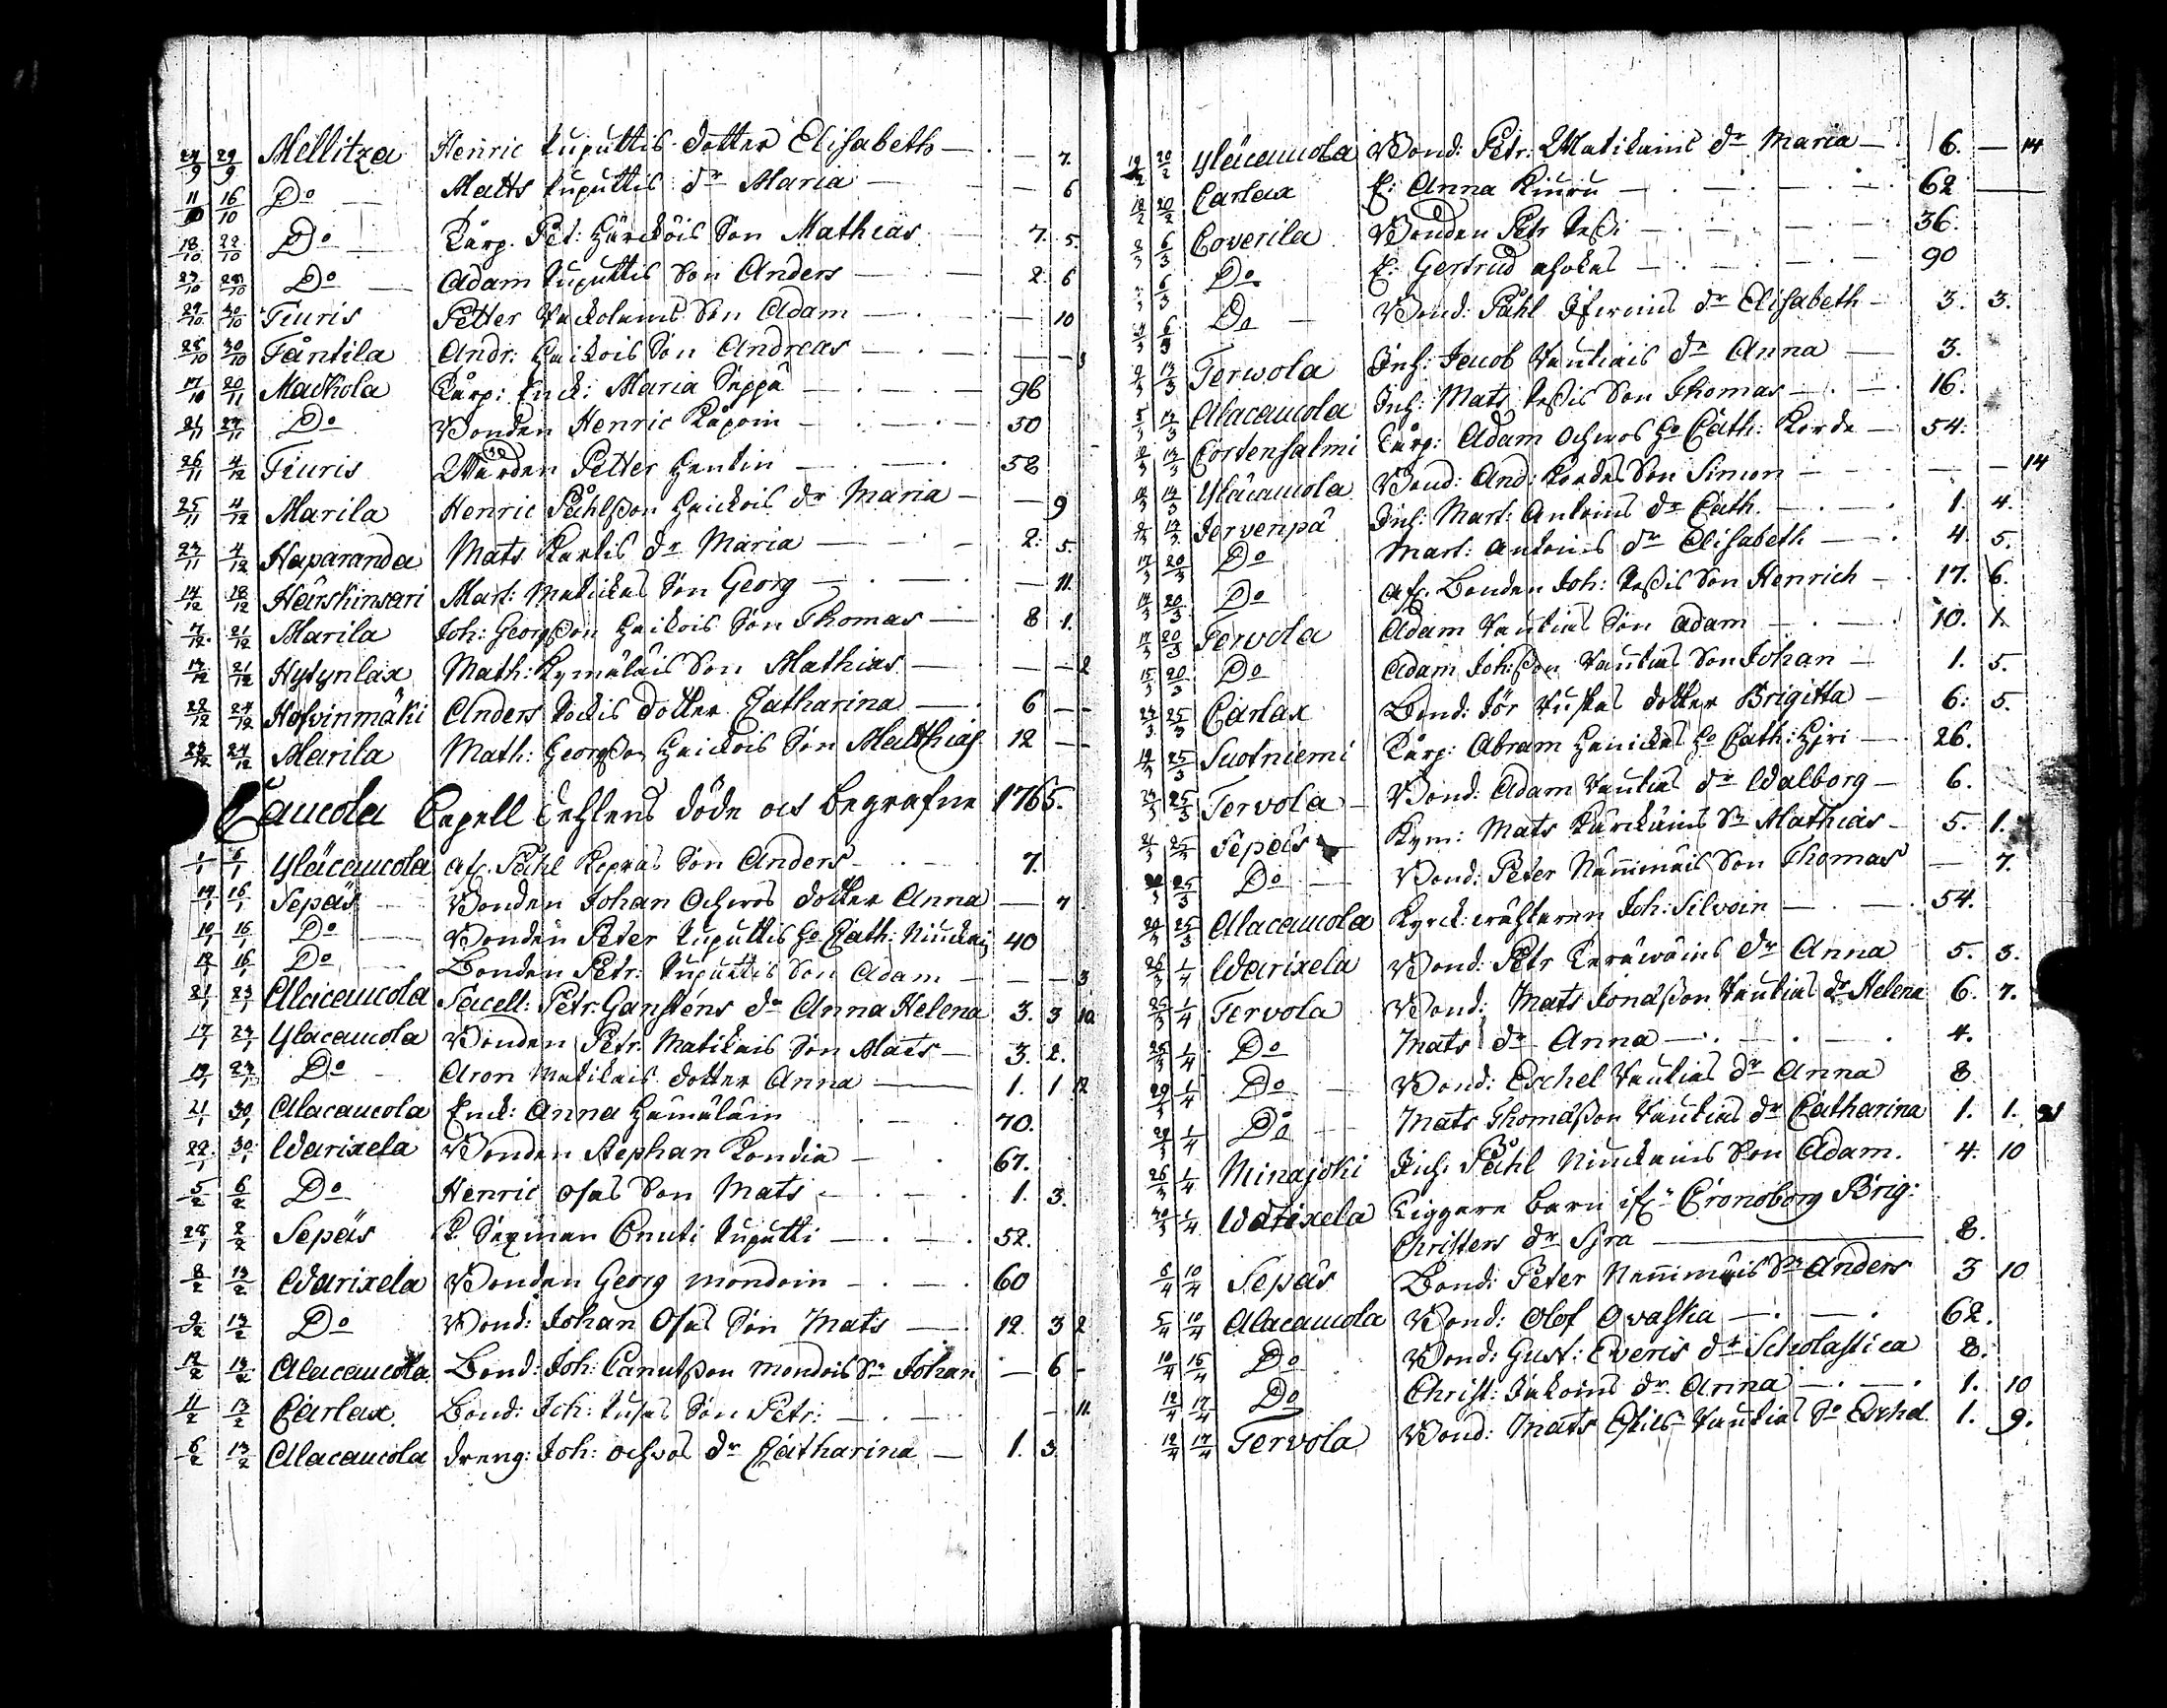 24/9 29/9 Mellitza Henric Kuputtis dotter Elisabeth — — 7.
11/10 16/10 Do Matts Kuputtis dr Maria — — 6
18/10 22/10 Do Kårp. Pet: Härcköis Son Mathias 7. 5.
23/10 28/10 Do Adam Kuputtis Son Anders — 2. 6
24/10 30/10 Tiuris Petter Son Adam — — 10
28/10 30/10 Tåntila Andr: Haikois Son Andreas — — — 3
17/10 20/11 Mackola Kårp: Enck: Maria Seppä — 96
21/11 27/11 Do Bonden Henric Kåpoin — 50
26/11 4/12 Tiuris Petter Hentin — 58
25/11 4/12 Marila Henric Påhlßon Haickois dr Maria — — 9
23/11 4/12 Haparanda Mats Kurkis dr Maria — 2. 5.
14/12 18/12 Härskinsari Mart: Matickas Son Georg — — 11.
7/12 21/12 Marila Joh: Georgßon Haikois Son Thomas — 8 1.
17/12 21/12 Hytynlax Math: Kymäläis Son Mathias — — — 2
22/12 24/12 Hofvinmäki Anders Dotter Catharina — 6 — —
23/12 24/12 Marila Math: Georgßon Haickois Son Matthias 12 — —
Caucola Capell döde och begrafne 1765.
1/1 6/1 Yläcaucola Påhl Repoas Son Anders — 7.
14/1 16/1 Sepäs Bonden Johan Ochwos dotter Anna — 7
10/1 16/1 Do Bonden Peter Kuputtis Ho Cath: 40
12/1 16/1 Do Bonden Petr: Kuputtis Son Adam — — — 3
21/1 23/1 Alacaucola Sacell: Petr. Ganséns dr Anna Helena 3. 3 10.
17/1 27/1 Ylacaucola Bonden Petr. Matikais Son Mats — 3. 2.
19/1 27/1 Do Aron Matikais dotter Anna — 1. 1 12
21/1 30/1 Alacaucola Enck: Anna Hämäläin 70.
22/1 30/1 Warixela Bonden Stephan Kondia — 67.
5/2 6/2 Do Henric Osas Son Mats — 1. 3.
28/1 8/2 Sepäs Cnuti Kuputti — 52.
8/2 13/2 Warixela Bonden Georg mondoin — 60
9/2 13/2 Do Bond: Johan Osas Son Mats — 12. 3 2
12/2 13/2 Alacaucola Bond: Joh: Canutßon mondois Sn Johan — 6 —
11/2 13/2 Carlax Bond: Joh: Kusas Son Petr: — — 11.
6/2 13/2 Alacaucola dreng: Joh: ochwos dr Catharina — 1. 3.
19/2 20/2 Yläcaucola Bond: Petr. Matikains dr Maria — 6. — 14
18/2 20/2 Carlax E: Anna Kiuru — 62 —
2/3 6/3 Coverila Bonden Petr Keßi — 36.
6/3 Do E: Gertrud — 90
4/3 6/3 Do Bond: Påhl dr Elisabeth — 3. 3.
9/3 13/3 Terwola Inh: Jacob Vautiais dr Anna — 3.
5/3 13/3 Alacaucola Inh: Mats Keßis Son Thomas — 16.
8/3 13/3 Cortensalmi Kårp: Adam Ochwos Ho Cath: Korde — 54:
12/3 13/3 Yläcaucola Bond: And: Kordes Son Simon — — — 14
9/3 13/3 Jervenpä Inh: Mart: Antoins dr Cath. — 1. 4.
17/3 20/3 Do Mart: Antoins dr Elisabeth — 4. 5.
14/3 20/3 Do Bonden Joh: Keßis Son Henrich — 17. 6.
17/3 20/3 Tervola Adam Vautias Son adam — 10. 1.
15/3 20/3 Do Adam Joh:ßon Vautias Son Johan — 1. 5.
23/3 25/3 Carlax Bond: Jör dotter Brigitta — 6: 5.
19/3 25/3 Suotniemi Kårp: Abram Ho Cath: — 26.
23/3 25/3 Tervola — Bond: Adam Vautias dr Walborg — 6.
21/3 25/3 Sepäs Mats Sn Mathias — 5. 1.
20/3 25/3 Do Bond: Peter Nemmäis Son Thomas — 7.
20/3 25/3 Alacaucola Joh: Silvoin — 54.
26/3 1/4 Warixela Bond: Petr Keräwäins dr Anna 5. 3.
25/3 1/4 Tervola Bond: Mats Jonäßon Vautias dr Helena 6. 7.
25/3 1/4 Do Mats dr Anna — 4.
29/3 1/4 Do Bond: Eschel Vautias dr Anna 8
28/3 1/4 Do Mats Thomäßon Vautias dr Catharina 1. 1. 21
26/3 1/4 Minajoki Inh: Påhl Son Adam. 4. 10
30/3 1/4 Warixela Tiggare barn Cronoborg Brig:
Christers dr — 8.
6/4 10/4 Sepäs Bond: Peter Nemmäis Sn Anders 3 10
5/4 10/4 Alacaucola Bond: Olof Ovaska — 62.
10/4 15/4 Do Bond: Gust: Everis dr Scholastica 8.
12/4 17/4 Do Christ: Inkoins dr Anna — 1. 10
12/4 17/4 Tervola Bond: Mats Vautias So Eschel. 1. 9.